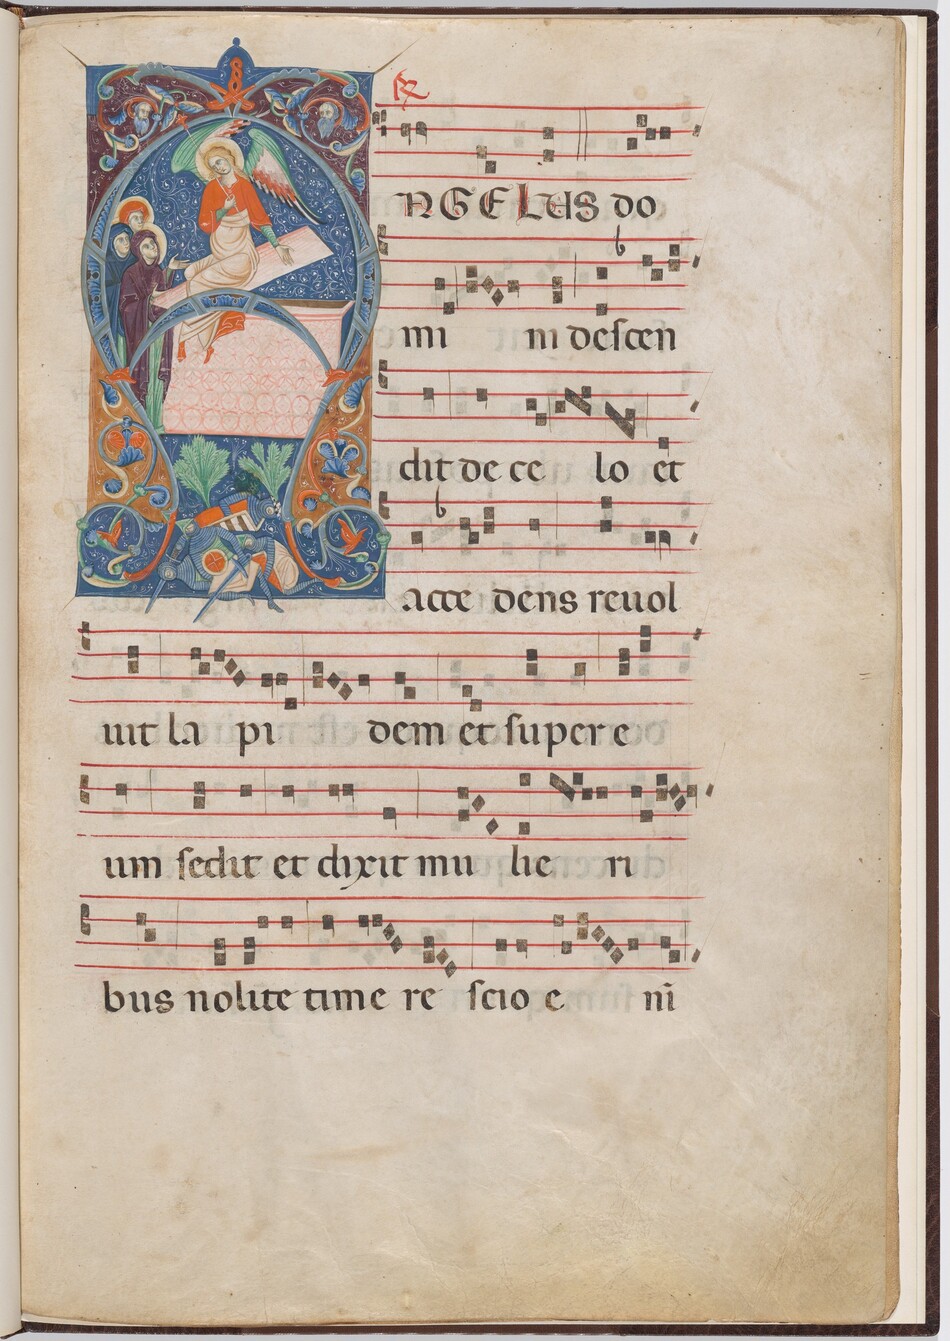 ℟
ANGELUS do
mi ni descen
dit de ce lo et
acce dens reuol
uit la pi dem et super e
um sedit et dixit mu lie ri
bus nolite time re scio e nı̄